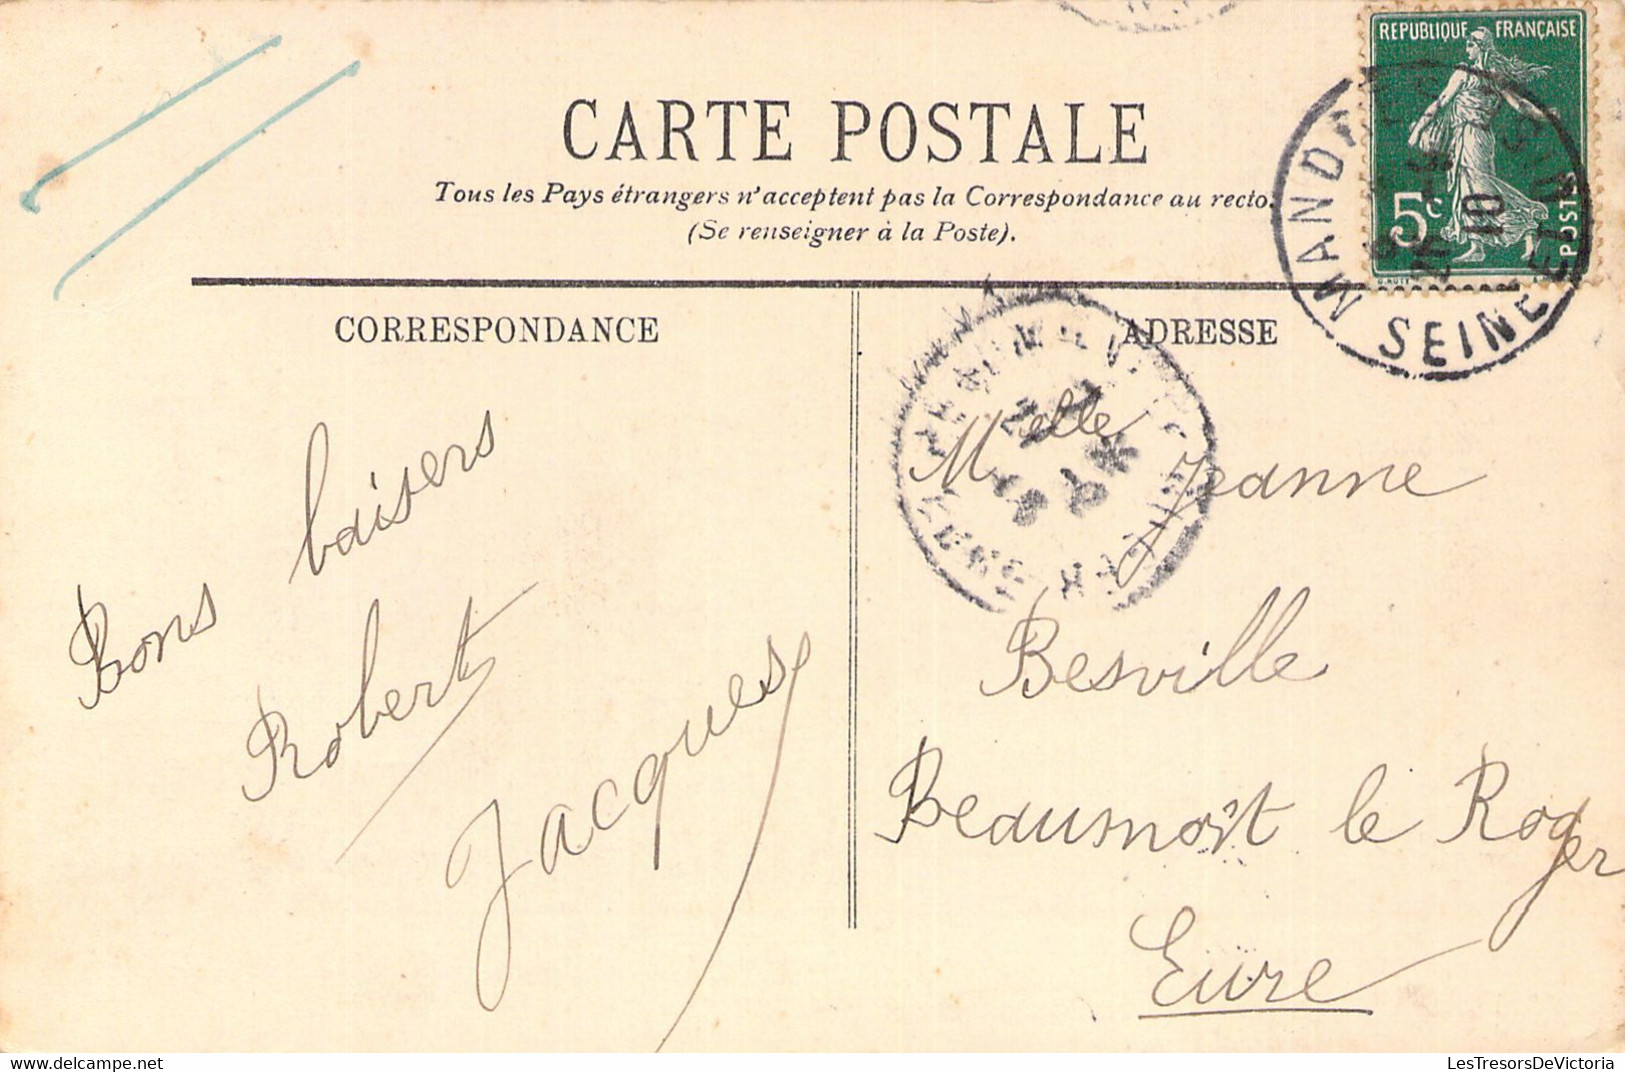 CARTE POSTALE
Tous les Pays étrangers n'acceptent pas la Correspondance au recto.
(Se renseigner à la Poste).
REPUBLIQUE FRANÇAISE
5c
POSTES
10
SEINE ET OISE
CORRESPONDANCE
ADRESSE
Bons baisers
Robert
Jacques
Melle Jeanne
Besville
Beaumont le Roger
Eure
LesTresorsDeVictoria